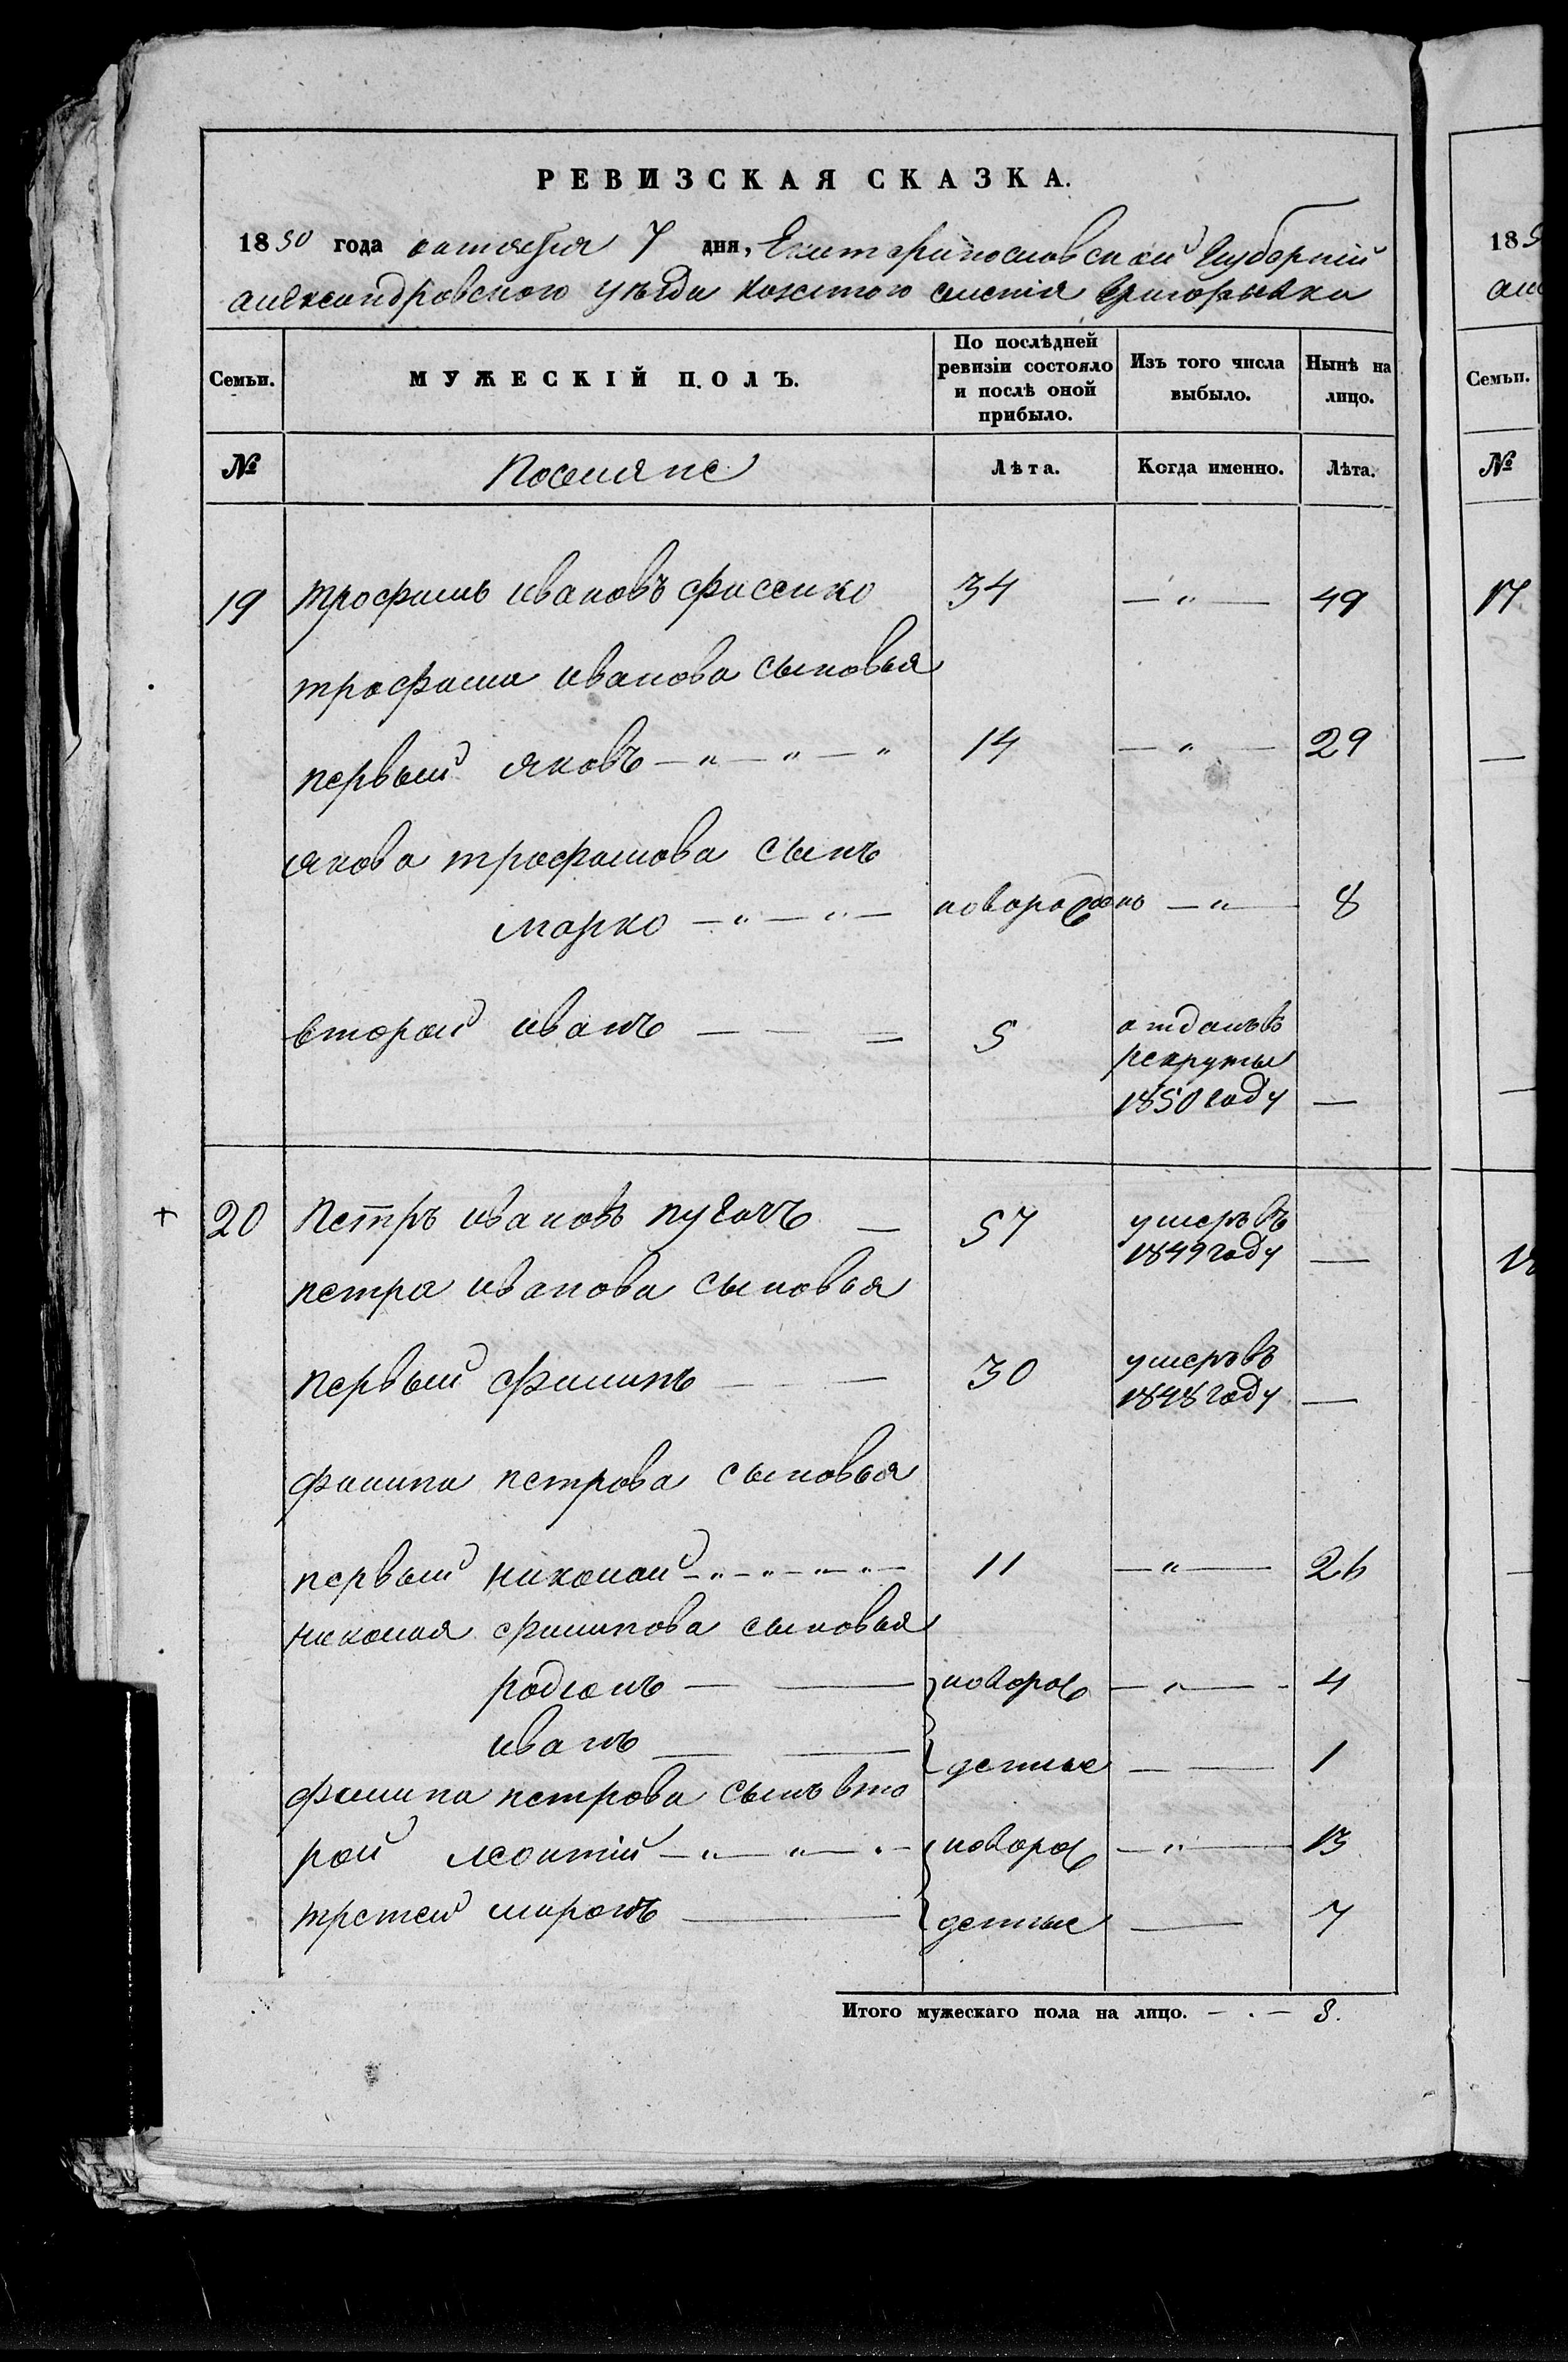 РЕВИЗСКАЯ СКАЗКА.
1850 года октября 7 дня, Екатеринославской Губерніи
александровского уезда казенного селенія Григорьевки
Семьи. МУЖЕСКІЙ ПОЛЪ. По послѣдней ревизіи состояло и послѣ оной прибыло. Изъ того числа выбыло. Нынѣ на лицо.
№ Поселяне Лѣта. Когда именно. Лѣта.
19 трофимъ ивановъ 34 — „ — 49
трофима иванова сыновья
первый яковъ — „ — „ — „ 14 — „ — 29
якова трофимова сынъ
марко — „ — „ — новорожденъ — „ — 8
второй иванъ — — = 5 отданъ въ
рекруты
1850 году —
20 Петръ ивановъ пугачъ — 57 умеръ въ
1849 году —
петра иванова сыновья
первый филипъ — — 30 умеръ въ
1848 году —
филипа петрова сыновья
первый николай — „ — „ — „ — „ — 11 — „ — 26
николая филипова сыновья
родіонъ — — новорож — „ — 4
иванъ — — денные — — 1
филипа петрова сынъ вто
рой леонтій — „ — „ — „ — новорож — „ — 13
третей миронъ — денные — 7
Итого мужескаго пола на лицо. — . — 8.
185
Семьи.
№